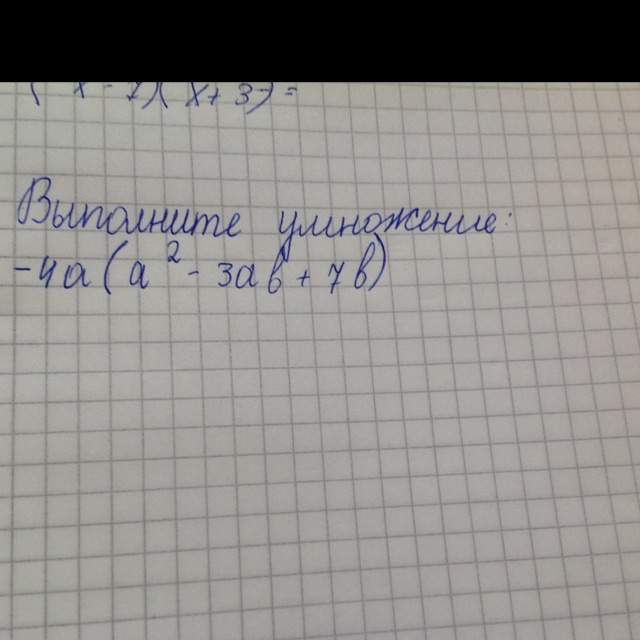 (x-7)(x+3)=
Выполните умножение:
-4a(a²-3ab+7b)